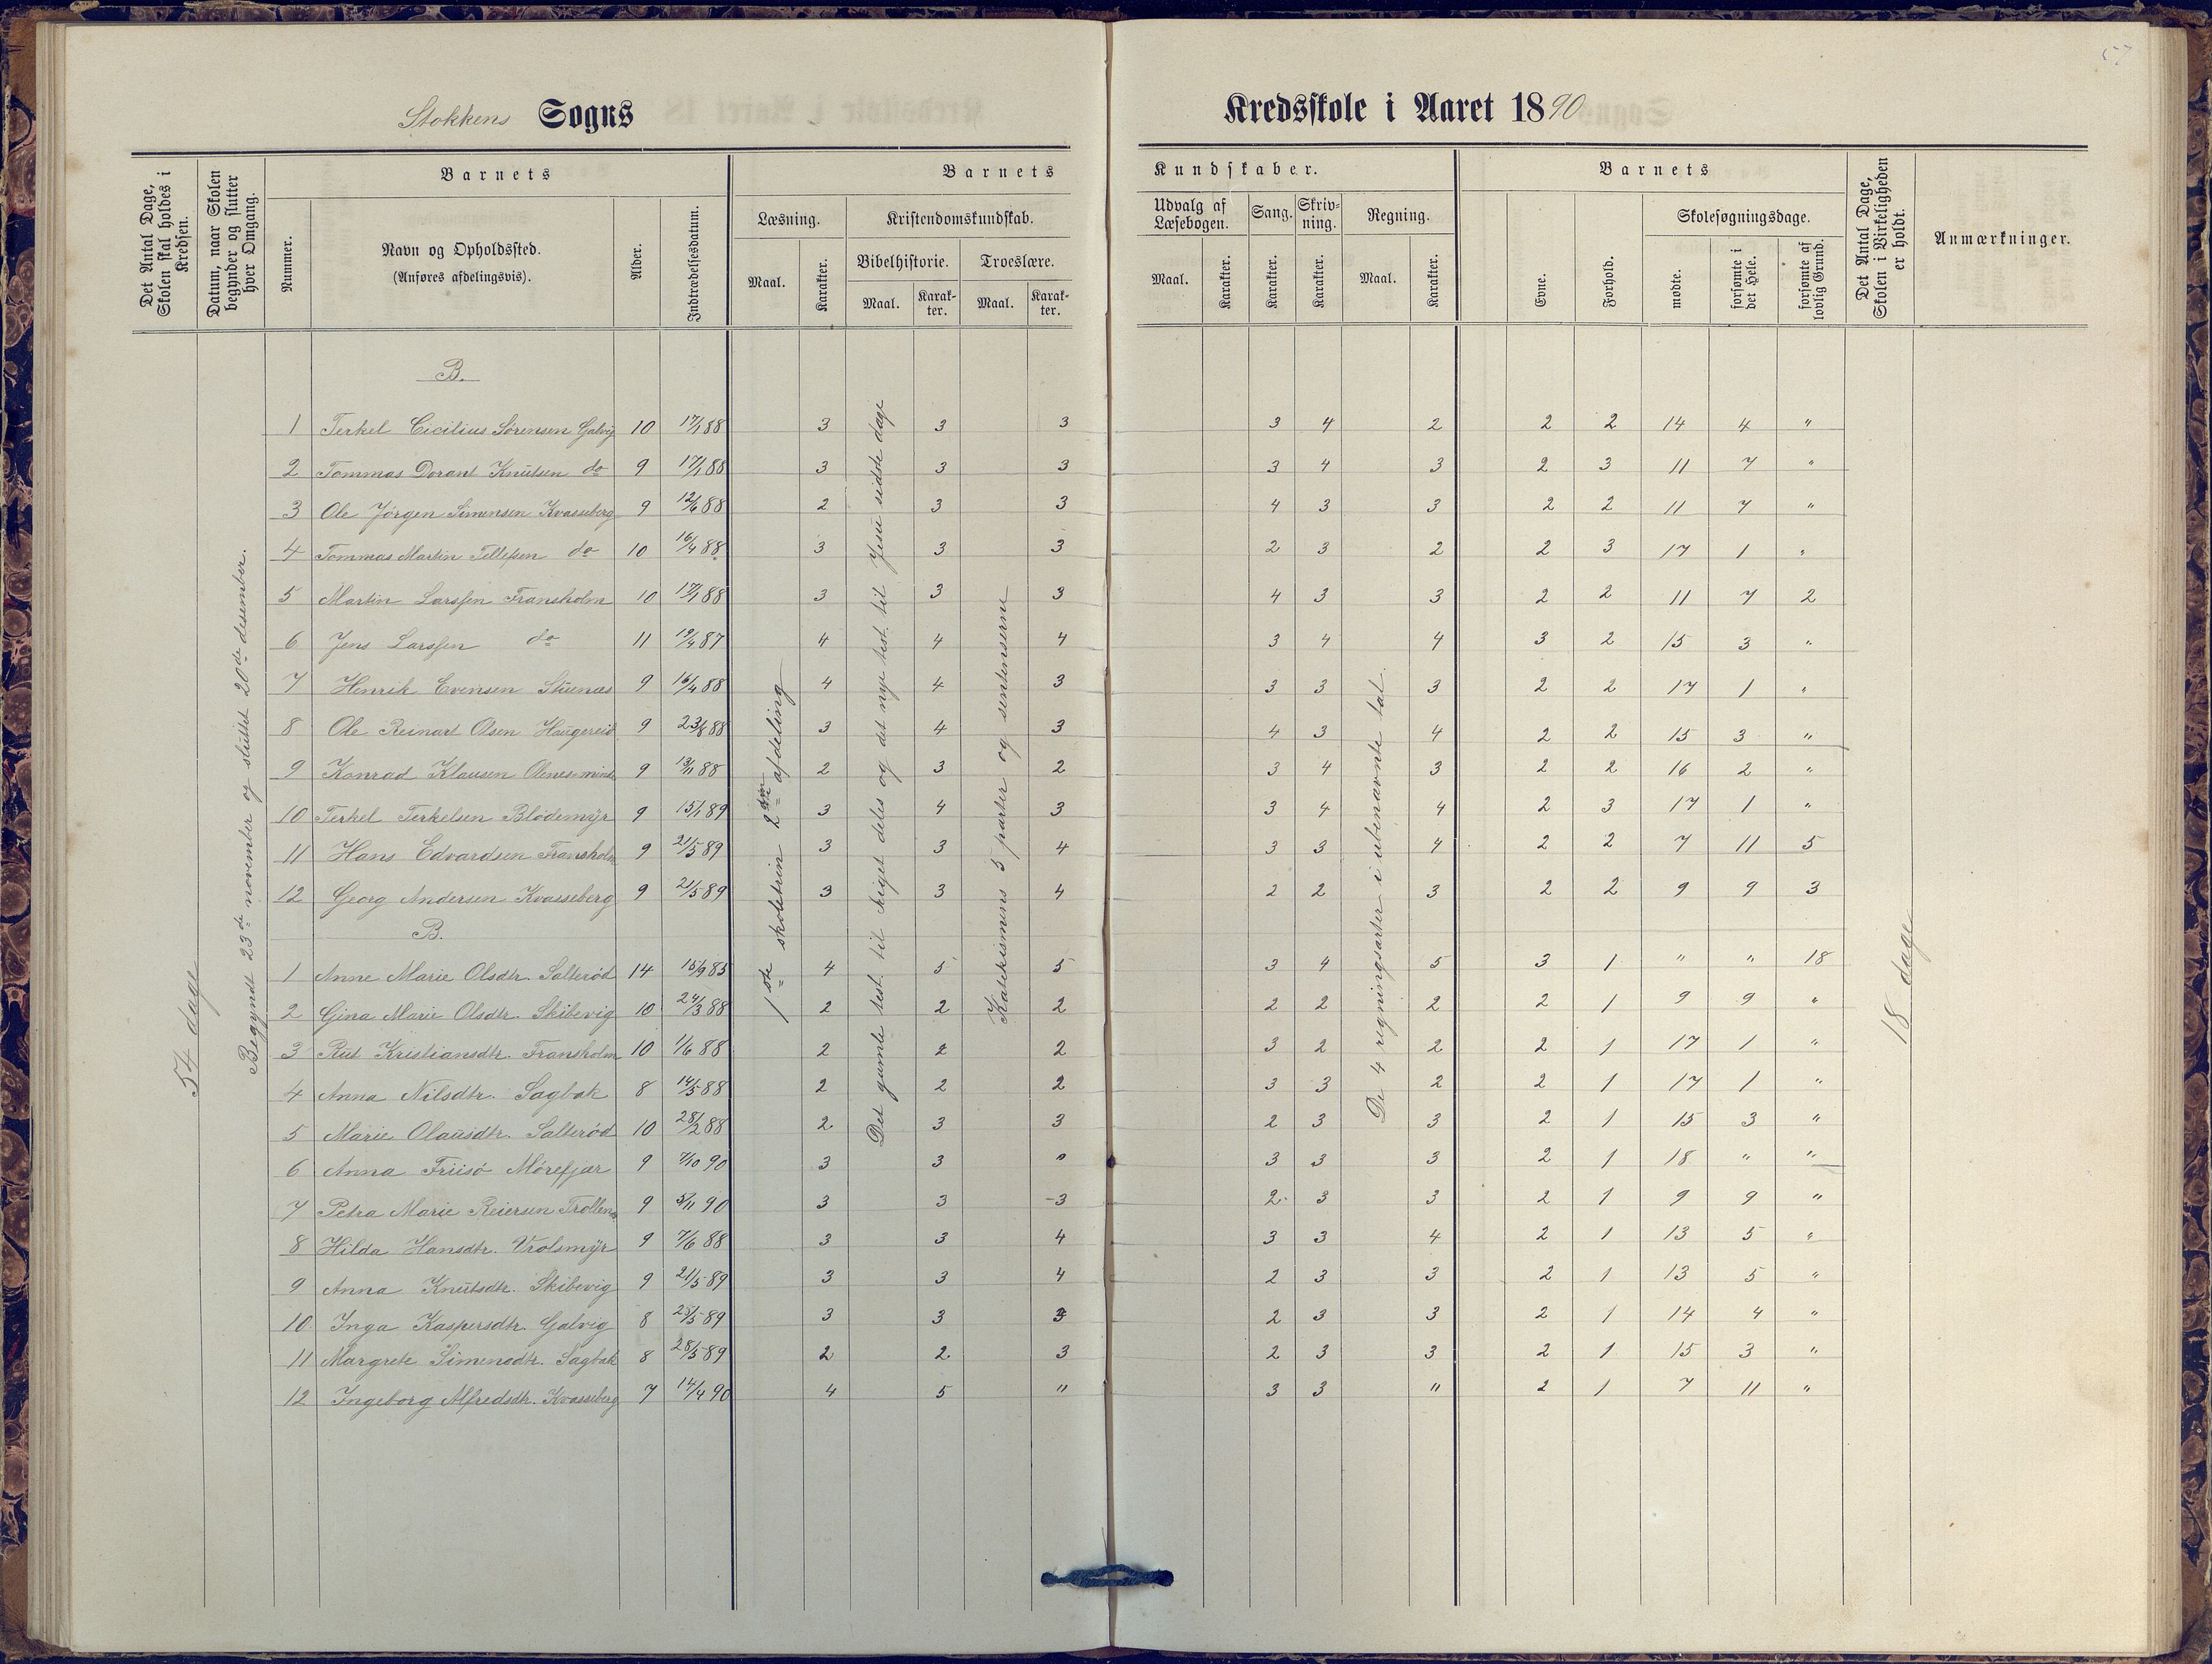 Stokkens Sogns
Kredsskole i Aaret 1890
Det Antal Dage, Skolen skal holdes i Kredsen.
Datum, naar Skolen begynder og slutter hver Omgang.
Barnets
Nummer.
Navn og Opholdssted.
(Anføres afdelingsvis).
Alder.
Indtrædelsesdatum.
Barnets
Læsning.
Maal.
Karakter.
Kristendomskundskab.
Bibelhistorie.
Maal.
Karakter.
Troeslære.
Maal.
Karakter.
Kundskaber.
Udvalg af Læsebogen.
Maal.
Karakter.
Sang.
Karakter.
Skrivning.
Karakter.
Regning.
Maal.
Karakter.
Barnets
Evne.
Forhold.
Skolesøgningsdage.
mødte.
forsømte i det Hele.
forsømte af lovlig Grund.
Det Antal Dage, Skolen i Virkeligheden er holdt.
Anmærkninger.
54 dage
Begyndt 23de november og sluttet 20de desember.
1ste skoletrin 2den afdeling
Det gamle test. til riget deles og det nye test. til Jesu sidste dage
Katekismens 5 parter og sentenserne
De 4 regningsarter i ubenævnte tal.
18 dage
B.
1 Terkel Cicilius Sørensen Galvig 10 17/1 88 3 3 3 3 4 2 2 2 14 4 "
2 Tommas Dorant Knutsen do 9 17/1 88 3 3 3 3 4 3 2 3 11 7 "
3 Ole Jørgen Simensen Kvasseberg 9 12/6 88 2 3 3 4 3 3 2 2 11 7 "
4 Tommas Martin Tellefsen do 10 16/4 88 3 3 3 2 3 2 2 3 17 1 "
5 Martin Larssen Fransholm 10 17/1 88 3 3 3 4 3 3 2 2 11 7 2
6 Jens Larssen do 11 19/4 87 4 4 4 3 4 4 3 2 15 3 "
7 Henrik Evensen Stuenæs 9 16/4 88 4 4 3 3 3 3 2 2 17 1 "
8 Ole Reinart Olsen Haugereid 9 23/8 88 3 4 3 4 3 4 2 2 15 3 "
9 Konrad Klausen Olenesminde 9 13/11 88 2 3 2 3 4 3 2 2 16 2 "
10 Terkel Terkelsen Blødemyr 9 15/1 89 3 4 3 3 4 4 2 3 17 1 "
11 Hans Edvardsen Fransholm 9 21/5 89 3 3 4 3 3 4 2 2 7 11 5
12 Georg Andersen Kvasseberg 9 21/5 89 3 3 4 2 2 3 2 2 9 9 3
B.
1 Anne Marie Olsdtr. Salterød 14 15/9 85 4 5 5 3 4 5 3 1 " " 18
2 Gina Marie Olsdtr. Skibevig 10 24/3 88 2 2 2 2 2 2 2 1 9 9 "
3 Rut Kristiansdtr. Fransholm 10 1/6 88 2 2 2 3 2 2 2 1 17 1 "
4 Anna Nilsdtr. Sagbak 8 14/5 88 2 2 2 3 3 2 2 1 17 1 "
5 Marie Olausdtr. Salterød 10 28/2 88 2 3 3 2 3 3 2 1 15 3 "
6 Anna Friisø Mørefjær 9 7/10 90 3 3 " 3 3 3 2 1 18 " "
7 Petra Marie Reiersen Trollenæs 9 5/11 90 3 3 3 2 3 3 2 1 9 9 "
8 Hilda Hansdtr. Vrolsmyr 9 7/6 88 3 3 4 3 3 4 2 1 13 5 "
9 Anna Knutsdtr. Skibevig 9 21/5 89 3 3 4 2 3 3 2 1 13 5 "
10 Inga Kaspersdtr. Galvig 8 28/5 89 3 3 3 2 3 3 2 1 14 4 "
11 Margrete Simensdtr. Sagbak 8 28/5 89 2 2 3 2 3 3 2 1 15 3 "
12 Ingeborg Alfredsdtr. Kvasseberg 7 14/4 90 4 5 " 3 3 " 2 1 7 11 "